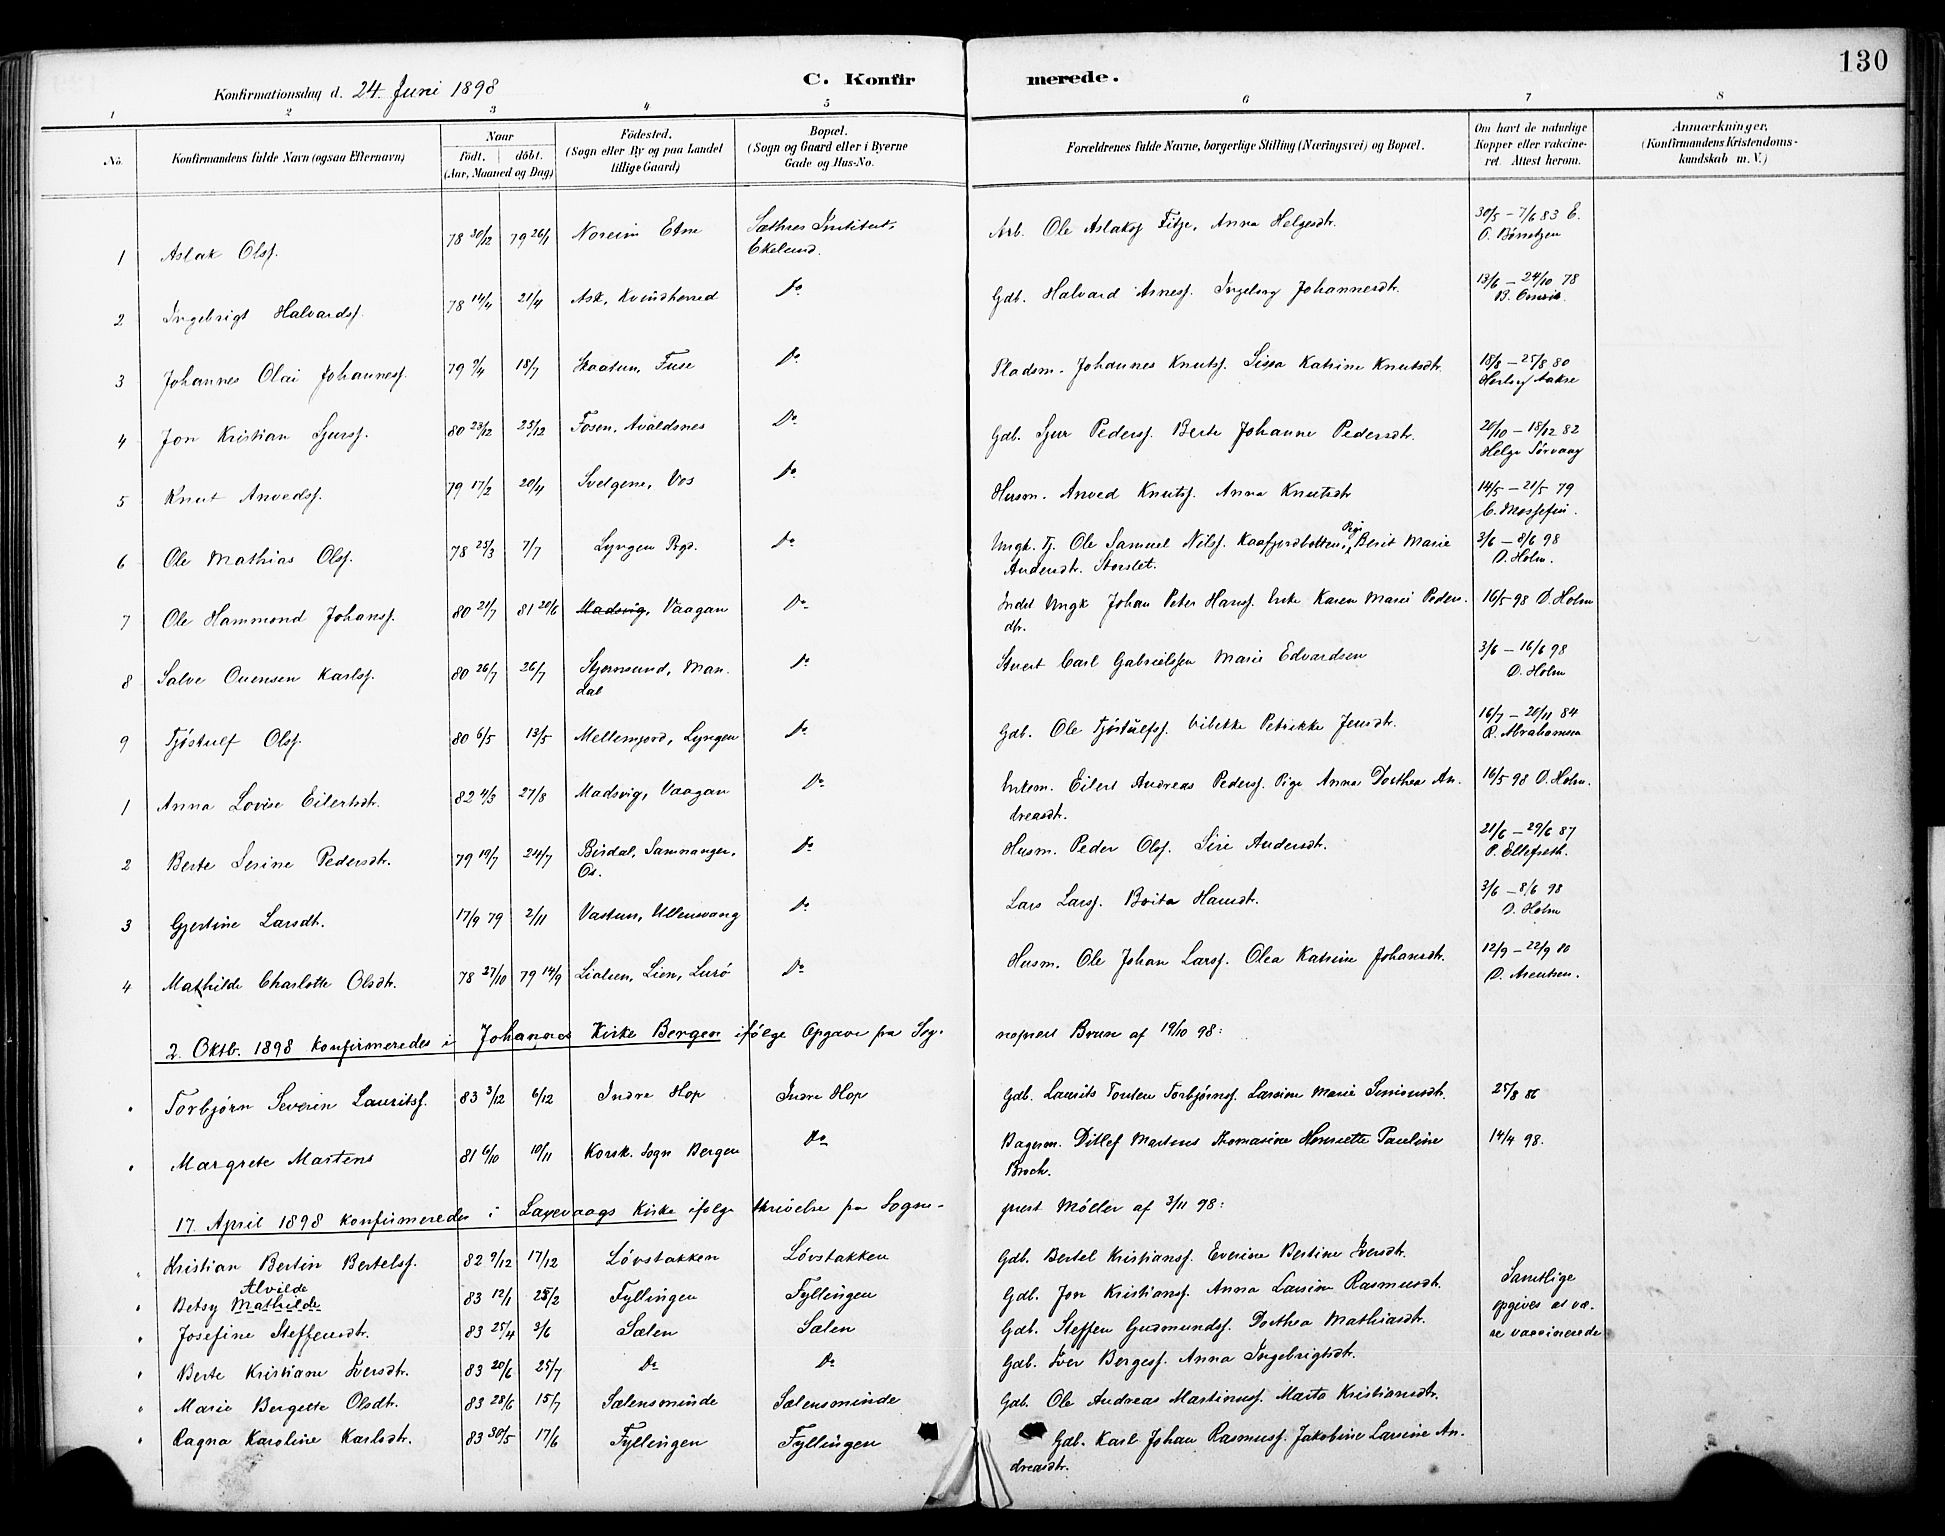 130
C. Konfirmerede.
Konfirmationsdag d. 24. Juni 1898
1 2 3 4 5 6 7 8
No. Konfirmandens fulde Navn (ogsaa Efternavn) Naar født, døbt. (Aar, Maaned og Dag) Fødested. (Sogn eller By og paa Landet tillige Gaard) Bopæl. (Sogn og Gaard eller i Byerne Gade og Hus-No. Forældrenes fulde Navne, borgerlige Stilling (Næringsvei) og Bopæl. Om havt de naturlige Kopper eller vakcineret. Attest herom. Anmærkninger. (Konfirmandens Kristendomskundskab m. V.)
1 Aslak Olsf. 78 30/12 79 26/1 Noreim Etne Sæthres Institut, Ekelund. Arb. Ole Aslaksf Fitze, Anna Helgesdtr. 30/5 – 7/6 83 E. O. Børretzen
2 Ingebrigt Halvardsf. 78 14/4 21/4 Ask, Kvindherred Do Gdb. Halvard Arnesf. Ingeborg Johannesdtr. 13/6 – 24/10 78 B.
3 Johannes Olai Johannesf. 79 9/4 18/7 Skaatun, Fuse Do Pladsm. Johannes Knutsf. Sissa Katrine Knutsdtr. 18/8 – 25/8 80 Aakre
4 Jon Kristian Sjursf. 80 23/12 25/12 Fosen, Avaldsnes Do Gdb. Sjur Pedersf. Berte Johanne Pedersdtr. 20/10 – 18/12 82 Helge Sørvaag
5 Knut Anvedsf. 79 17/2 20/4 Svelgene, Vos Do Husm. Anved Knutsf. Anna Knutsdtr 14/5 – 21/5 79 C. Mossefin.
6 Ole Mathias Olsf. 78 25/3 7/7 Lyngen Prgd. Do Ungk. Tj. Ole Samuel Nilsf. Kaafjordbotten, Pige Berit Marie Andersdtr. Storslet. 3/6 – 8/6 98 D. Holm.
7 Ole Hammond Johansf. 80 21/7 81 20/6 Madsvig, Vaagan Do Indst Ungk Johan Peter Hansf. Enke Karen Marie Pedersdtr. 16/5 98 D. Holm
8 Salve Ouensen Karlsf. 80 26/7 26/7 Stjernsund, Mandal Do Stuert Carl Gabrielssen Marie Edvardsen 3/6 – 16/6 98 D. Holm
9 Tjøstulf Olsf. 80 6/5 13/5 Mellemjord, Lyngen Do Gdb. Ole Tjøstulfsf. Vibekke Petrikke Jensdtr. 16/7 – 20/11 84 R. Abrahamsen
1 Anna Lovise Eilertsdtr. 82 4/3 27/8 Madsvig, Vaagan Do Enkem. Eilert Andreas Pedersf. Pige Anna Dorthea Andreasdtr. 16/5 98 D. Holm.
2 Berte Serine Pedersdtr. 79 19/7 24/7 Birdal, Samnanger, Os. Do Husm. Peder Olsf. Siri Andersdtr. 21/6 – 29/6 87 P. Ellefseth.
3 Gjertine Larsdtr. 17/9 79 2/11 Vastun, Ullensvang Do Lars Larsf. Brita Hansdtr. 3/6 – 8/6 98 D. Holm
4 Mathilde Charlotte Olsdtr. 78 27/10 79 14/9 Lialien, Lien, Lurø Do Husm. Ole Johan Larsf. Olea Katrine Johansdtr. 12/9 – 22/9 80 D. Arentsen.
2. Oktb. 1898 konfirmeredes i Johannes Kirke Bergen ifølge Opgave fra Sogneprest Brun af 19/10 98:
" Torbjørn Severin Lauritsf. 83 3/12 6/12 Indre Hop Indre Hop Gdb. Laurits Torsten Torbjørnsf. Larsine Marie Simonsdtr. 25/8 86
" Margrete Martens 81 6/10 10/11 Korsk. Sogn Bergen Do Bagerm. Ditlef Martens Thomasine Henriette Pauline Broch. 14/4 98.
17. April 1898 konfirmeredes i Laxevaags Kirke ifølge Skrivelse fra Sogneprest Møller af 3/11 98:
" Kristian Bertin Bertelsf. 82 9/12 17/12 Løvstakken Løvstakken Gdb. Bertel Kristiansf. Everine Bertine Iversdtr.
" Betsy Alvilde Mathilde 83 12/1 25/2 Fyllingen Fyllingen Gdb. Jon Kristiansf. Anna Larsine Rasmusdtr. Samtlige opgives at være vaccinerede
" Josefine Steffensdtr. 83 25/4 3/6 Sælen Sælen Gdb. Steffen Gudmundsf. Dorthea Mathiasdtr.
" Berte Kristiane Iversdtr. 83 20/6 25/7 Do Do Gdb. Iver Bergesf. Anna Ingebrigtsdtr.
" Marie Bergitte Olsdtr. 83 28/6 15/7 Sælensminde Sælensminde Gdb. Ole Andreas Martinusf. Marta Kristiansdtr.
" Ragna Karoline Karlsdtr. 83 30/5 17/6 Fyllingen Fyllingen Gdb. Karl Johan Rasmusf. Jakobine Larsine Andreasdtr.